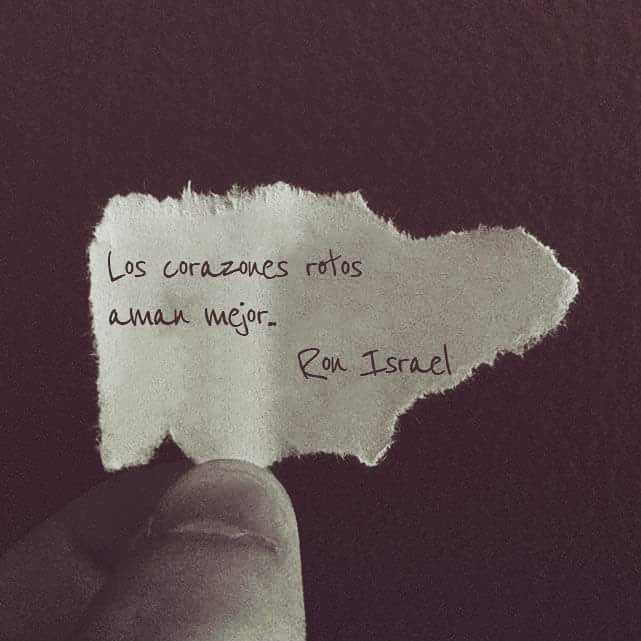 Los corazones rotos
aman mejor..
Ron Israel